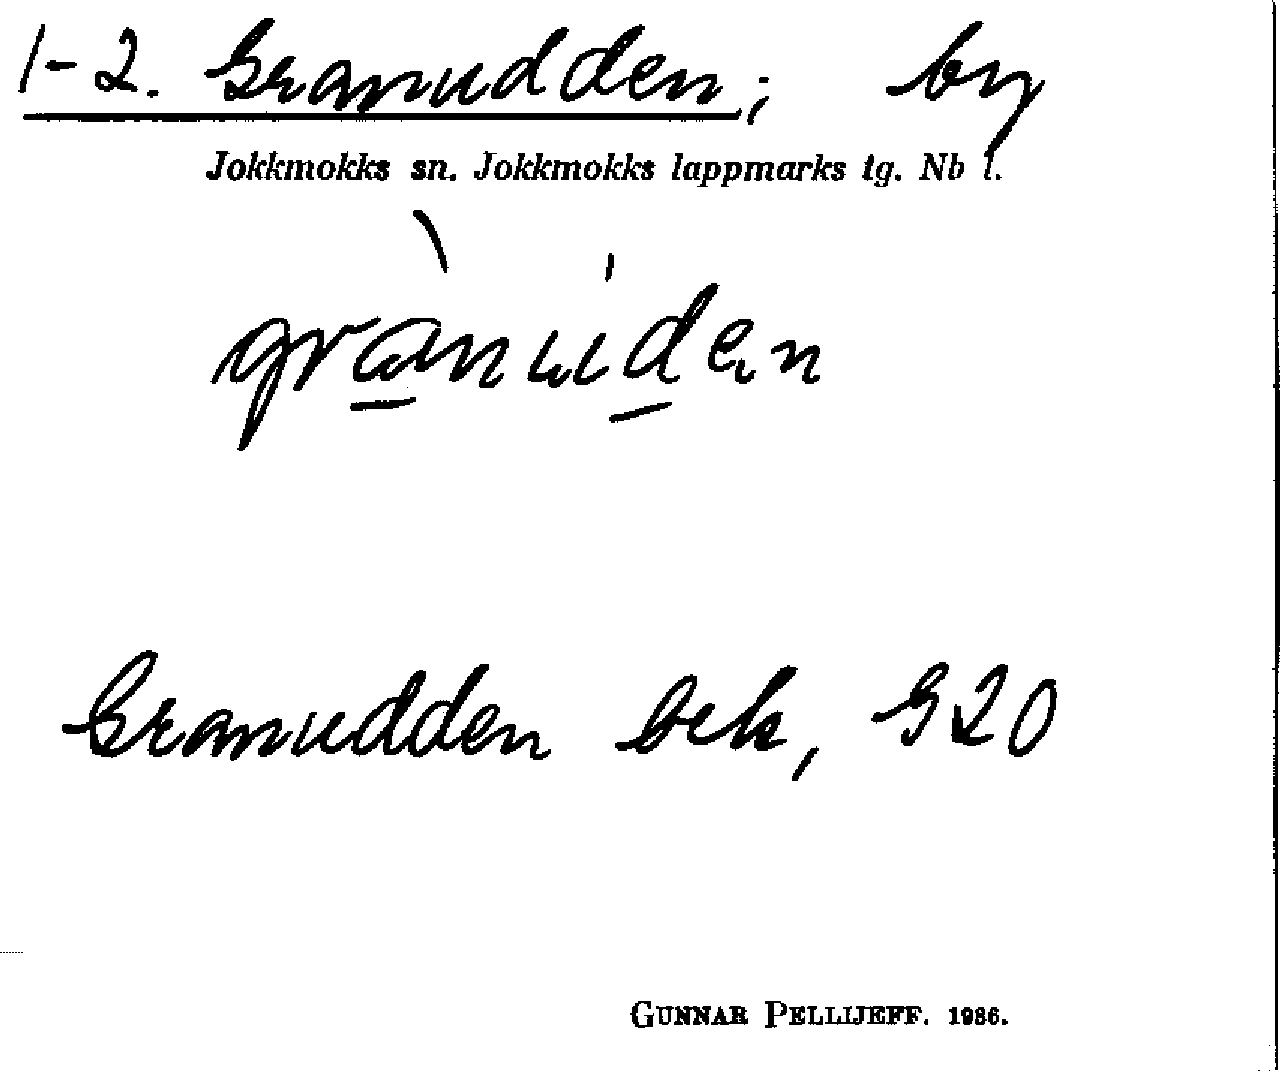 1-2. Granudden; by
Jokkmokks sn. Jokkmokks lappmarks tg. Nb l.
Granudden bek, G20
GUNNAR PELLIJEFF. 1986.